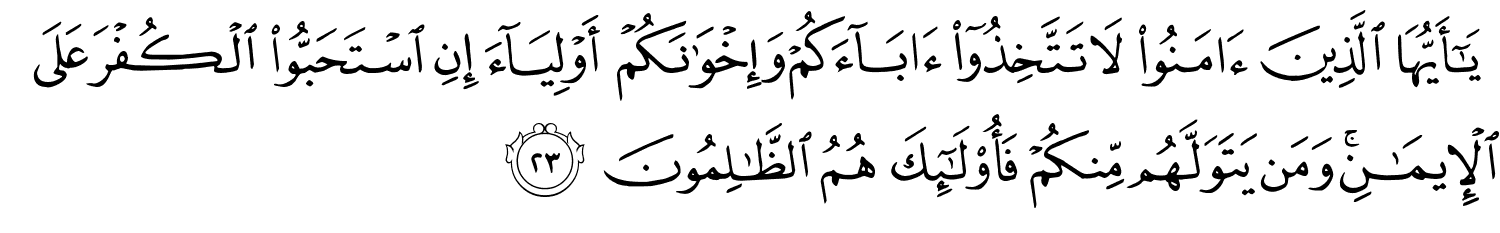 يَـٰٓأَيُّهَا ٱلَّذِينَ ءَامَنُوا۟ لَا تَتَّخِذُوٓا۟ ءَابَآءَكُمْ وَإِخْوَٰنَكُمْ أَوْلِيَآءَ إِنِ ٱسْتَحَبُّوا۟ ٱلْكُفْرَ عَلَى
ٱلْإِيمَـٰنِ ۚ وَمَن يَتَوَلَّهُم مِّنكُمْ فَأُو۟لَـٰٓئِكَ هُمُ ٱلظَّـٰلِمُونَ ٢٣